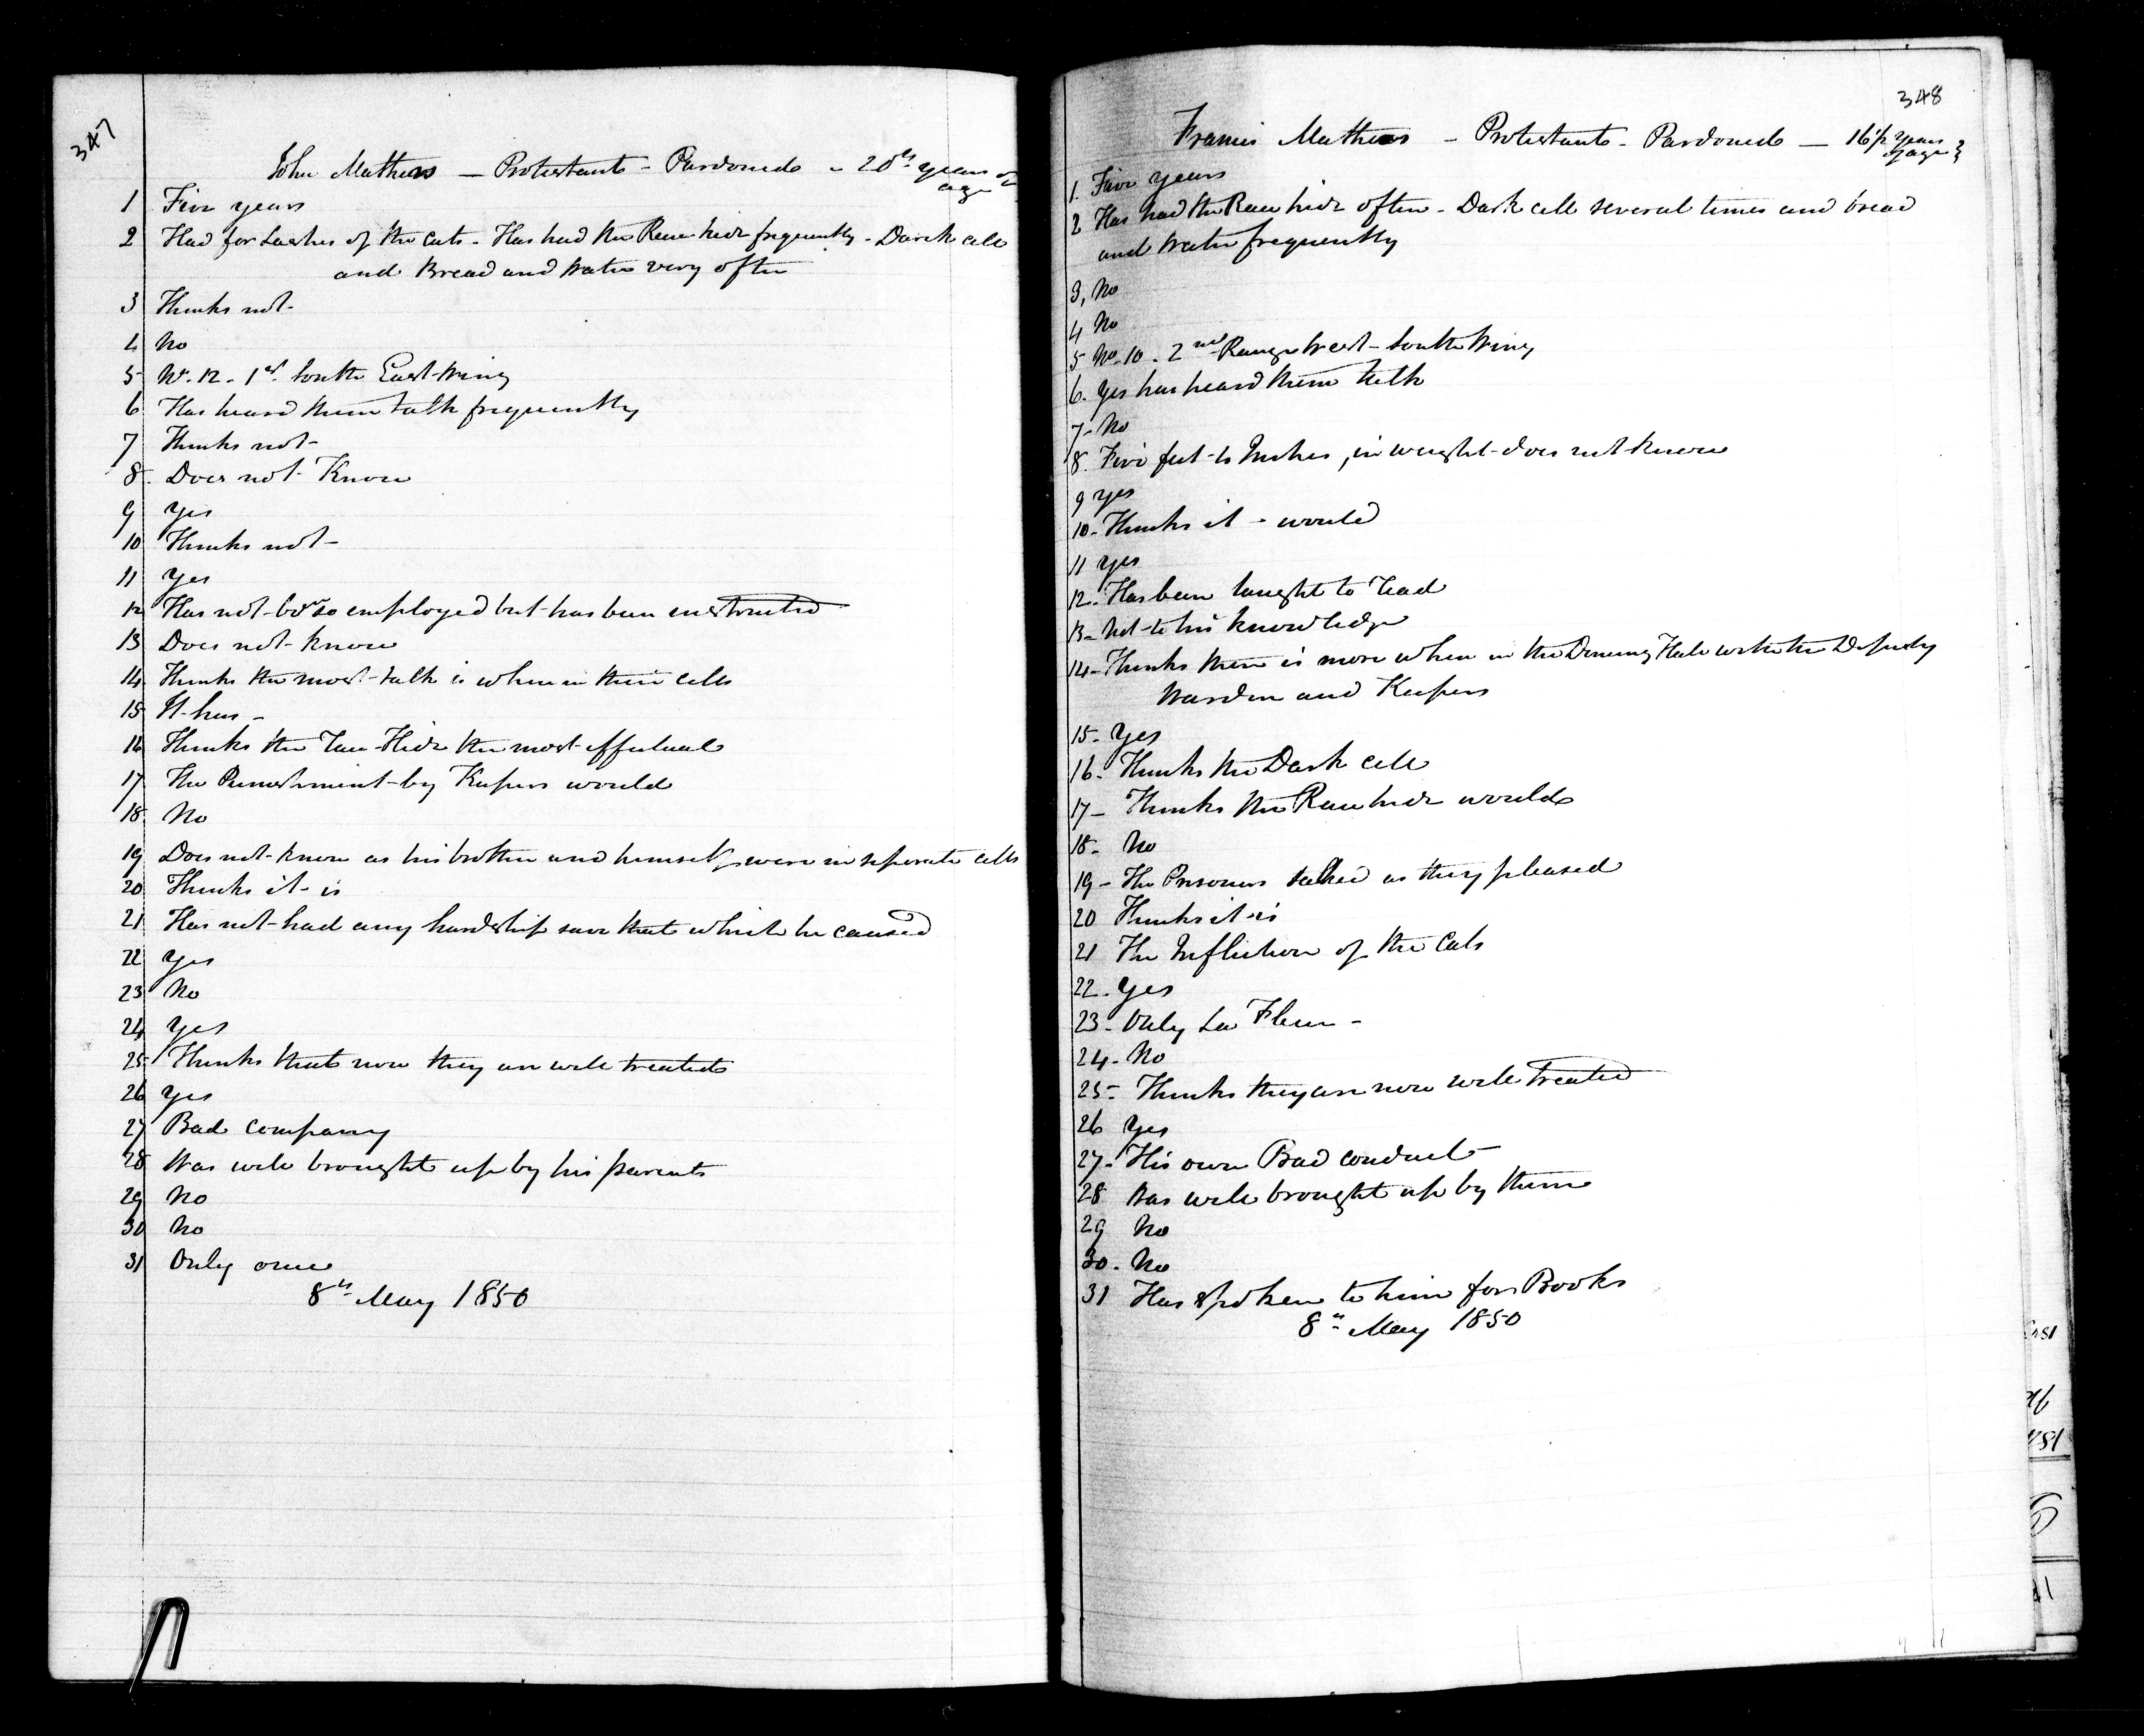 347
John Mathews — Protestant - Pardoned - 20th years of
age
1 Five years
2 Had for Lashes of the Cats - Has had the Raw hide frequently - Dark cell
and Bread and Water very often
3 Thinks not -
4 No
5 No. 12 - 1st South East Wing
6 Has heard them talk frequently
7 Thinks not -
8. Does not Know
9 Yes
10 Thinks not -
11 Yes
12 Has not been so employed but has been instructed
13 Does not know
14 Thinks the most talk is when in their cells
15 It has -
16 Thinks the Raw Hide the most effectual
17 The Punishment by Keepers would
18 No
19 Does not know as his brother and himself were in seperate cells
20 Thinks it is
21 Has not had any hardship save that which he caused
22 Yes
23 No
24 Yes
25 Thinks that now they are well treated
26 Yes
27 Bad company
28 Was well brought up by his parents
29 No
30 No
31 Only once
8th May 1850
348
Francis Mathews — Protestant - Pardoned — 16½ years
of age
1. Five years
2 Has had the Raw hide often - Dark cell several times and bread
and water frequently
3, No
4 No
5 No. 10 - 2nd Range West - South Wing
6. Yes has heard them talk
7- No
8. Five feet Inches, in weight does not know
9 Yes
10- Thinks it - would
11 Yes
12- Has been taught to read
13- Not to his knowledge
14- Thinks there is more when in the Dining Hall with the Deputy
Warden and Keepers
15- Yes
16- Thinks the Dark cell
17- Thinks the Raw hide would
18- No
19- The Prisoners talked as they pleased
20 Thinks it is
21 The Infliction of the Cats
22- Yes
23- Only La Fleur -
24- No
25- Thinks they are now well treated
26 Yes
27- His own Bad conduct
28 Was well brought up by them
29 No
30. No
31 Has spoken to him for Books
8th May 1850